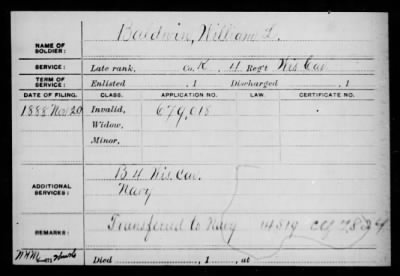 NAME OF SOLDIER: Baldwin, William L.
SERVICE: Late rank, Co. K, 4 Reg't Wis Cav
TERM OF SERVICE: Enlisted , 1 Discharged , 1
DATE OF FILING. CLASS. APPLICATION NO. LAW CERTIFICATE NO.
1888 Nov 20 Invalid, 679,018
Widow,
Minor,
ADDITIONAL SERVICES: B 4 Wis Cav.
Navy
REMARKS: Transferred to Navy 14819
Died , 1 , at